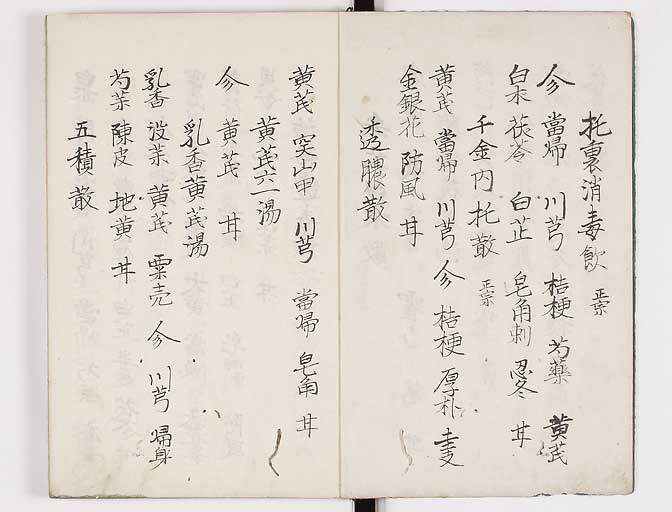 托裏消毒飲 正宗
㐱 當帰 川芎 桔梗 芍藥 黄芪
白朮 茯苓 白芷 皂角刺 忍冬 甘
千金内托散 正宗
黄芪 當帰 川芎 㐱 桔梗 厚朴 圭支
金銀花 防風 甘
透膿散
黄芪 穿山甲 川芎 當帰 皂角 甘
黄芪六一湯
㐱 黄芪 甘
乳香黄芪湯
乳香 没茱 黄芪 粟売 㐱 川芎 帰身
芍茱 陳皮 地黄 甘
五積散